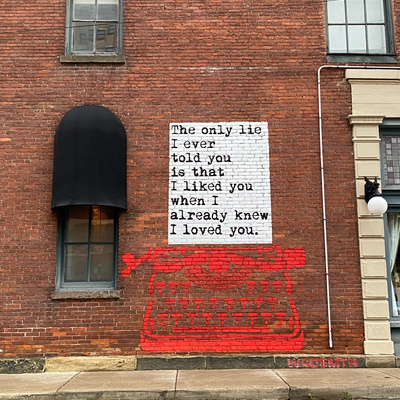 The only lie
I ever
told you
is that
I liked you
when I
already knew
I loved you.